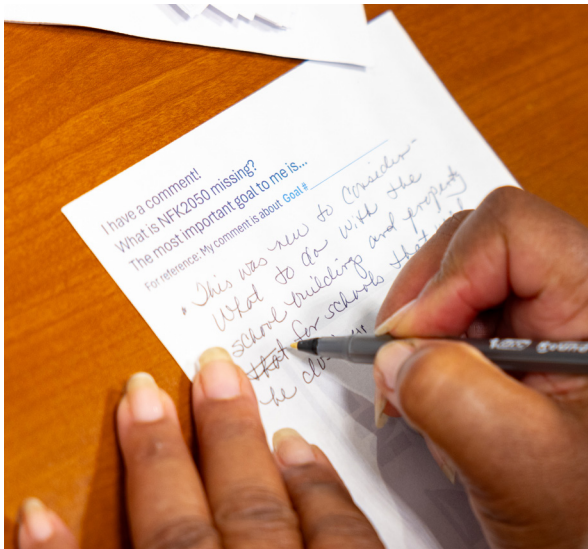 I have a comment!
What is NFK2050 missing?
The most important goal to me is...
For reference: My comment is about Goal #
• This was new to consider-
What to do with the
school buildings and property
that for schools that
be